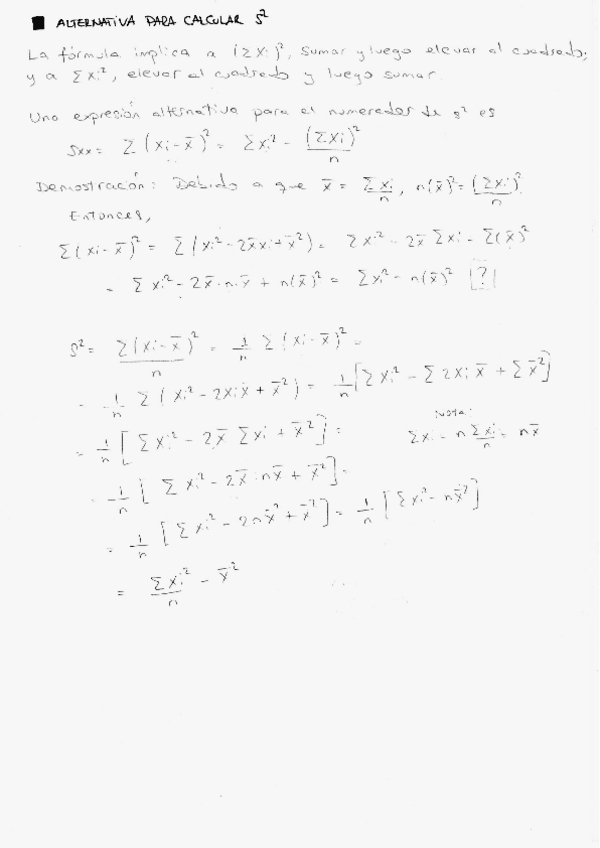 ■ ALTERNATIVA PARA CALCULAR S²
La fórmula implica a (Σxi)², sumar y luego elevar al cuadrado;
y a Σxi², elevar al cuadrado y luego sumar.
Una expresión alternativa para el numerador de s² es
Sxx = Σ(xi - x̄)² = Σxi² - (Σxi)²/n
Demostración: Debido a que x̄ = Σxi/n, n(x̄)² = (Σxi)²/n
Entonces,
Σ(xi - x̄)² = Σ(xi² - 2x̄xi + x̄²) = Σxi² - 2x̄ Σxi - Σ(x̄)²
= Σxi² - 2x̄·n·x̄ + n(x̄)² = Σxi² - n(x̄)² [?]
S² = Σ(xi - x̄)²/n = 1/n Σ(xi - x̄)² =
= 1/n Σ(xi² - 2xix̄ + x̄²) = 1/n [Σxi² - Σ2xi x̄ + Σx̄²]
= 1/n [Σxi² - 2x̄ Σxi + x̄²] =
Nota:
Σxi = n Σxi/n = nx̄
= 1/n [Σxi² - 2x̄·nx̄ + x̄²] =
= 1/n [Σxi² - 2nx̄² + x̄²] = 1/n [Σxi² - nx̄²]
= Σxi²/n - x̄²